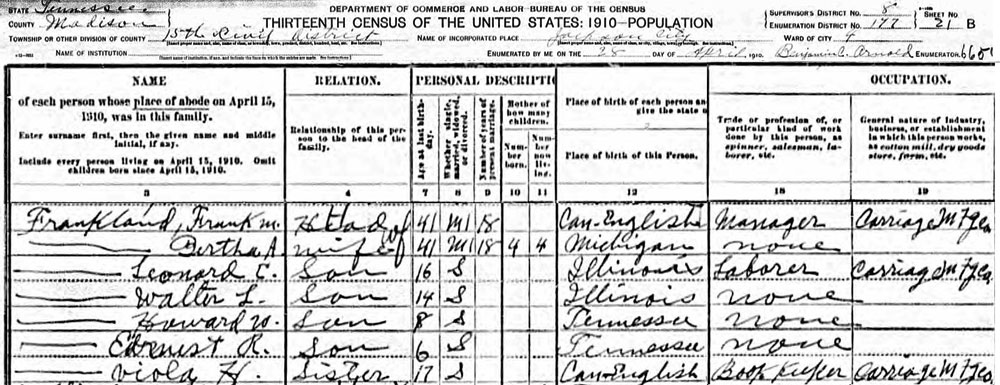 STATE Tennessee
DEPARTMENT OF COMMERCE AND LABOR-BUREAU OF THE CENSUS
COUNTY Madison
THIRTEENTH CENSUS OF THE UNITED STATES: 1910-POPULATION
SUPERVISOR'S DISTRICT NO. 8
ENUMERATION DISTRICT NO. 177
SHEET NO. 31 B
TOWNSHIP OR OTHER DIVISION OF COUNTY 15th Civil District
NAME OF INCORPORATED PLACE Jackson City
WARD OF CITY 4
NAME OF INSTITUTION
ENUMERATED BY ME ON THE 25 DAY OF April, 1910. Benjamin C. Arnold ENUMERATOR 6651
NAME
of each person whose place of abode on April 15, 1910, was in this family.
Enter surname first, then the given name and middle initial, if any.
Include every person living on April 15, 1910. Omit children born since April 15, 1910.
RELATION.
Relationship of this person to the head of the family.
PERSONAL DESCRIPTI
Age at last birthday.
Whether single, married, widowed, or divorced.
Number of years of present marriage.
Mother of how many children.
Number born.
Number now living.
Place of birth of each person an
give the state
Place of birth of this Person.
OCCUPATION.
Trade or profession of, or particular kind of work done by this person, as spinner, salesman, laborer, etc.
General nature of industry, business, or establishment in which this person works, as cotton mill, dry goods store, farm, etc.
3 4 7 8 9 10 11 12 18 19
Frankland, Frank M. Head of 41 M 18 Can-English Manager Carriage Mfg Co
Bertha A. wife of 41 M 18 4 4 Michigan none
Leonard C. Son 16 S Illinois Laborer Carriage Mfg Co
Walter L. Son 14 S Illinois none
Howard W. Son 8 S Tennessee none
Earnest R. Son 6 S Tennessee none
Viola H. Sister 17 S Can-English Book Keeper Carriage Mfg Co